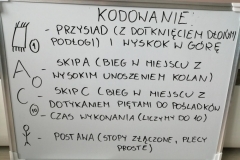 KODOWANIE:
- PRZYSIAD (Z DOTKNIĘCIEM DŁOŃMI
1 PODŁOGI) I WYSKOK W GÓRĘ
A - SKIP A (BIEG W MIEJSCU Z
WYSOKIM UNOSZENIEM KOLAN)
C - SKIP C (BIEG W MIEJSCU Z
DOTYKANIEM PIĘTAMI DO POŚLADKÓW
10 - CZAS WYKONANIA (LICZYMY DO 10)
- POSTAWA (STOPY ZŁĄCZONE, PLECY
PROSTE)